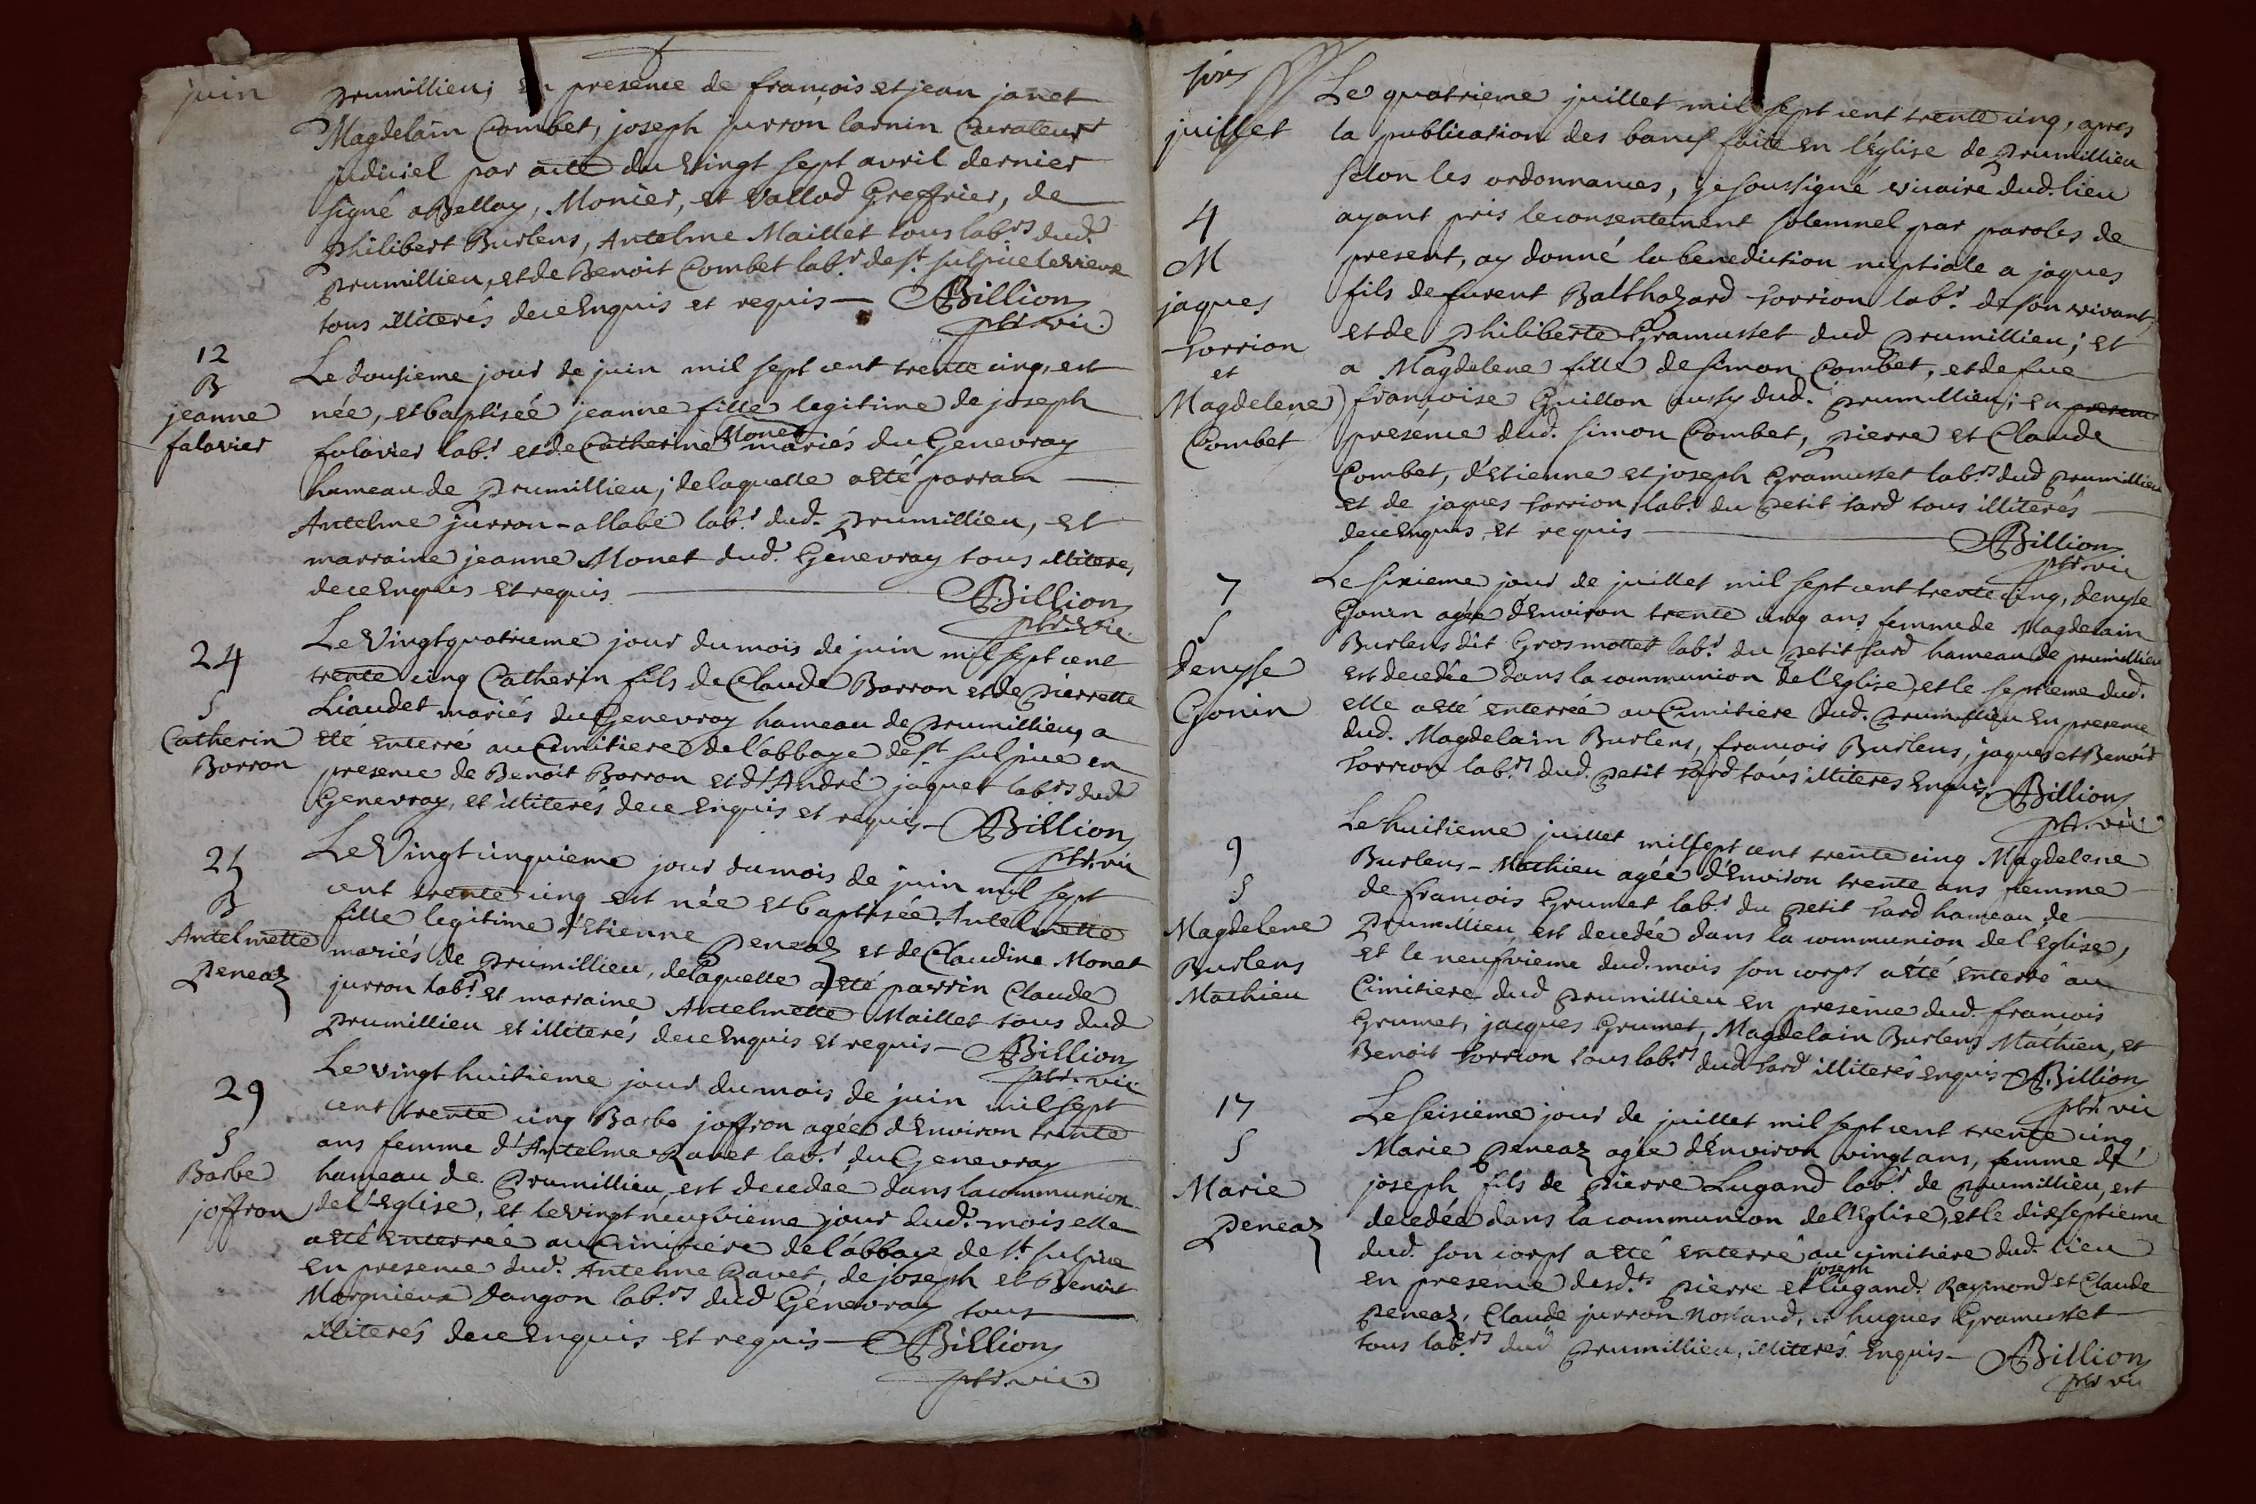 juin
prumillieu; en presence de françois et jean janet
Magdelain Combet, joseph jurron larnin Curateur
judiciel par acte du vingt sept avril dernier
signé aBellay, Monier, et Vallod Greffier, de
Philibert Burlens, Antelme Maillet tous labrs dud.
prumillieu, et de Benoit Combet labr de st sulpice le vieux
tous illiterés de ce Enquis et requis — Billion
ptre vic.
12
B
jeanne
falavier
Le dousieme jour de juin mil sept cent trente cinq, est
née, et baptisée jeanne fille legitime de joseph
falavier labr et de Catherine Monet mariés du Genevray
hameau de prumillieu; de laquelle a Eté parrain
Antelme jurron-allabé labr dud. prumillieu, et
marraine jeanne Monet dud. Genevray tous illiteres
de ce Enquis et requis — Billion
ptre vic.
24
S
Catherin
Borron
Le Vingt quatrieme jour du mois de juin mil sept cent
trente cinq Catherin fils de Claude Borron et de Pierrette
Liaudet mariés du Genevray hameau de prumillieu, a
Eté Enterré au Cimitiere de l'abbaye de st sulpice en
presence de Benoit Borron et d'André jaquet labrs dud
Genevray, et illiterés de ce Enquis et requis — Billion
ptre vic
25
B
Antelmette
Peneaz
Le Vingt cinquieme jour du mois de juin mil sept
cent trente cinq est née et baptisée Antelmette
fille legitime d'Etienne Peneaz et de Claudine Monet
mariés de prumillieu, de laquelle a Eté parrin Claude
jurron labr et marraine Antelmette Maillet tous dud
prumillieu et illiterés de ce Enquis et requis — Billion
ptre vic
29
S
Barbe
joffron
Le vingt huitieme jour du mois de juin mil sept
cent trente cinq Barbe joffron agée d'Environ trente
ans femme d'Antelme Ravet labr du Genevray
hameau de prumillieu est decedée dans la communion
de l'Eglise, et le vingt neufvieme jour dud. mois elle
a Eté Enterrée au Cimitiere de l'abbaye de st sulpice
En presence dud. Antelme Ravet, de joseph et Benoit
Margnieux Dangon labrs dud Genevray tous
illiterés de ce Enquis et requis — Billion
ptre vic.
juillet
4
M
jaques
Torrion
et
Magdelene
Combet
Le quatrieme juillet mil sept cent trente cinq, apres
la publication des bancs faite en l'Eglise de prumillieu
selon les ordonnances, je soussigné vicaire dud. lieu
ayant pris le consentement solemnel par paroles de
present, ay donné la benediction nuptiale a jaques
fils de furent Balthazard Torrion labr de son vivant,
et de Philiberte Gramusset dud prumillieu; et
a Magdelene fille de simon Combet, et de fue
françoise Guillon aussy dud. prumillieu; en presence
presence dud. simon Combet, pierre et Claude
Combet, d'Etienne et joseph Gramusset labrs dud prumillieu
et de jaques Torrion labr du petit tard tous illiterés
de ce Enquis et requis — Billion
ptre vic
7
S
Denyse
Gonin
Le sixieme jour de juillet mil sept cent trente cinq, denyse
Gonin agée d'Environ trente cinq ans femme de Magdelain
Burlens dit Grosmottet labr du petit tard hameau de prumillieu
est decedée dans la communion de l'Eglise, et le septieme dud.
elle a Eté enterrée au Cimitiere dud. prumillieu en presence
dud. Magdelain Burlens, francois Burlens, jaques et Benoit
Torrion labrs dud. petit tard tous illiteres Enquis. Billion
ptre vic
9
S
Magdelene
Burlens
Mathieu
Le huitieme juillet mil sept cent trente cinq Magdelene
Burlens-Mathieu agée d'Environ trente ans femme
de francois Grumet labr du petit tard hameau de
prumillieu est decedée dans la communion de l'Eglise,
et le neufvieme dud. mois son corps a Eté Enterré au
Cimitiere dud prumillieu en presence dud. francois
Grumet, jacques Grumet, Magdelain Burlens Mathieu, et
Benoit Torrion tous labrs dud tard illiterés enquis Billion
ptre vic
17
S
Marie
Peneaz
Le seisieme jour de juillet mil sept cent trente cinq,
Marie Peneaz agée d'Environ vingt ans, femme de
joseph fils de pierre Lugand labr de prumillieu, est
decedée dans la communion de l'Eglise, et le dixseptieme
dud. son corps a Eté enterré au cimitiere dud. lieu
en presence desdts pierre et joseph Lugand. Raymond et Claude
Peneaz, Claude jurron Norland, et hugues Gramusset
tous labrs dud prumillieu, illiterés Enquis — Billion
ptre vic